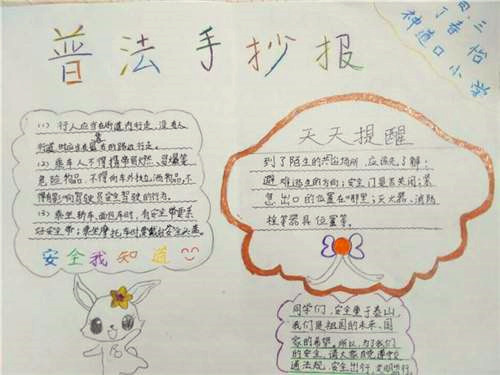 普法手抄报
四、三
丁春怡
神道口小学
(1) 行人应当在街道内行走，没有人
行道时应当靠最右的路边行走。
(2) 乘车人不得携带易燃、易爆等
危险物品，不得向车外抛洒物品，不
得有影响驾驶员安全驾驶的行为。
(3) 乘坐轿车、面包车时，有安全带要系
好安全带；乘坐摩托车时要戴好安全头盔
安全我知道
天天提醒
到了陌生的公共场所，应该先了解：
避难逃生的方向；安全门是否关闭；紧
急出口的位置在哪里；灭火器、消防
栓等器具位置等。
同学们，安全重于泰山，
我们是祖国的未来、国
家的希望。所以，为了我们
的安全，请大家自觉遵守交
通法规，安全出行，文明出行